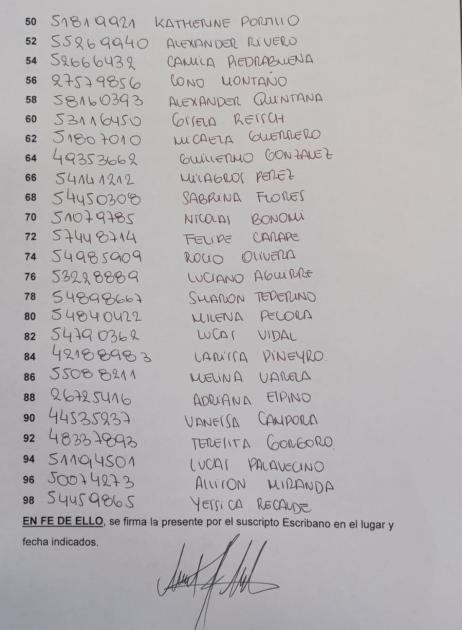 50 51819921 KATHERINE PORTILLO
52 55269940 ALEXANDER RIVERO
54 52666432 CAMILA PIEDRABUENA
56 27579856 CONO MONTAÑO
58 58160393 ALEXANDER QUINTANA
60 53116450 GISELA REISCH
62 51807010 MICAELA GUERRERO
64 49353662 GUILLERMO GONZALEZ
66 54141212 MILAGROS PEREZ
68 54450308 SABRINA FLORES
70 51079785 NICOLAS BONOMI
72 57448714 FELIPE CARAPE
74 54985909 ROCIO OLIVERA
76 53228889 LUCIANO AGUIRRE
78 54898667 SHARON TEPERINO
80 54840422 MILENA PECORA
82 54790362 LUCAS VIDAL
84 42188983 LARISSA PINEYRO
86 55088211 MELINA VARELA
88 26725416 ADRIANA ESPINO
90 44535237 VANESSA CAMPORA
92 48337893 TERESITA GORGORO
94 51194501 LUCAS PALAVECINO
96 50074273 ALLISON MIRANDA
98 54459865 YESSICA RECALDE
EN FE DE ELLO, se firma la presente por el suscripto Escribano en el lugar y
fecha indicados.